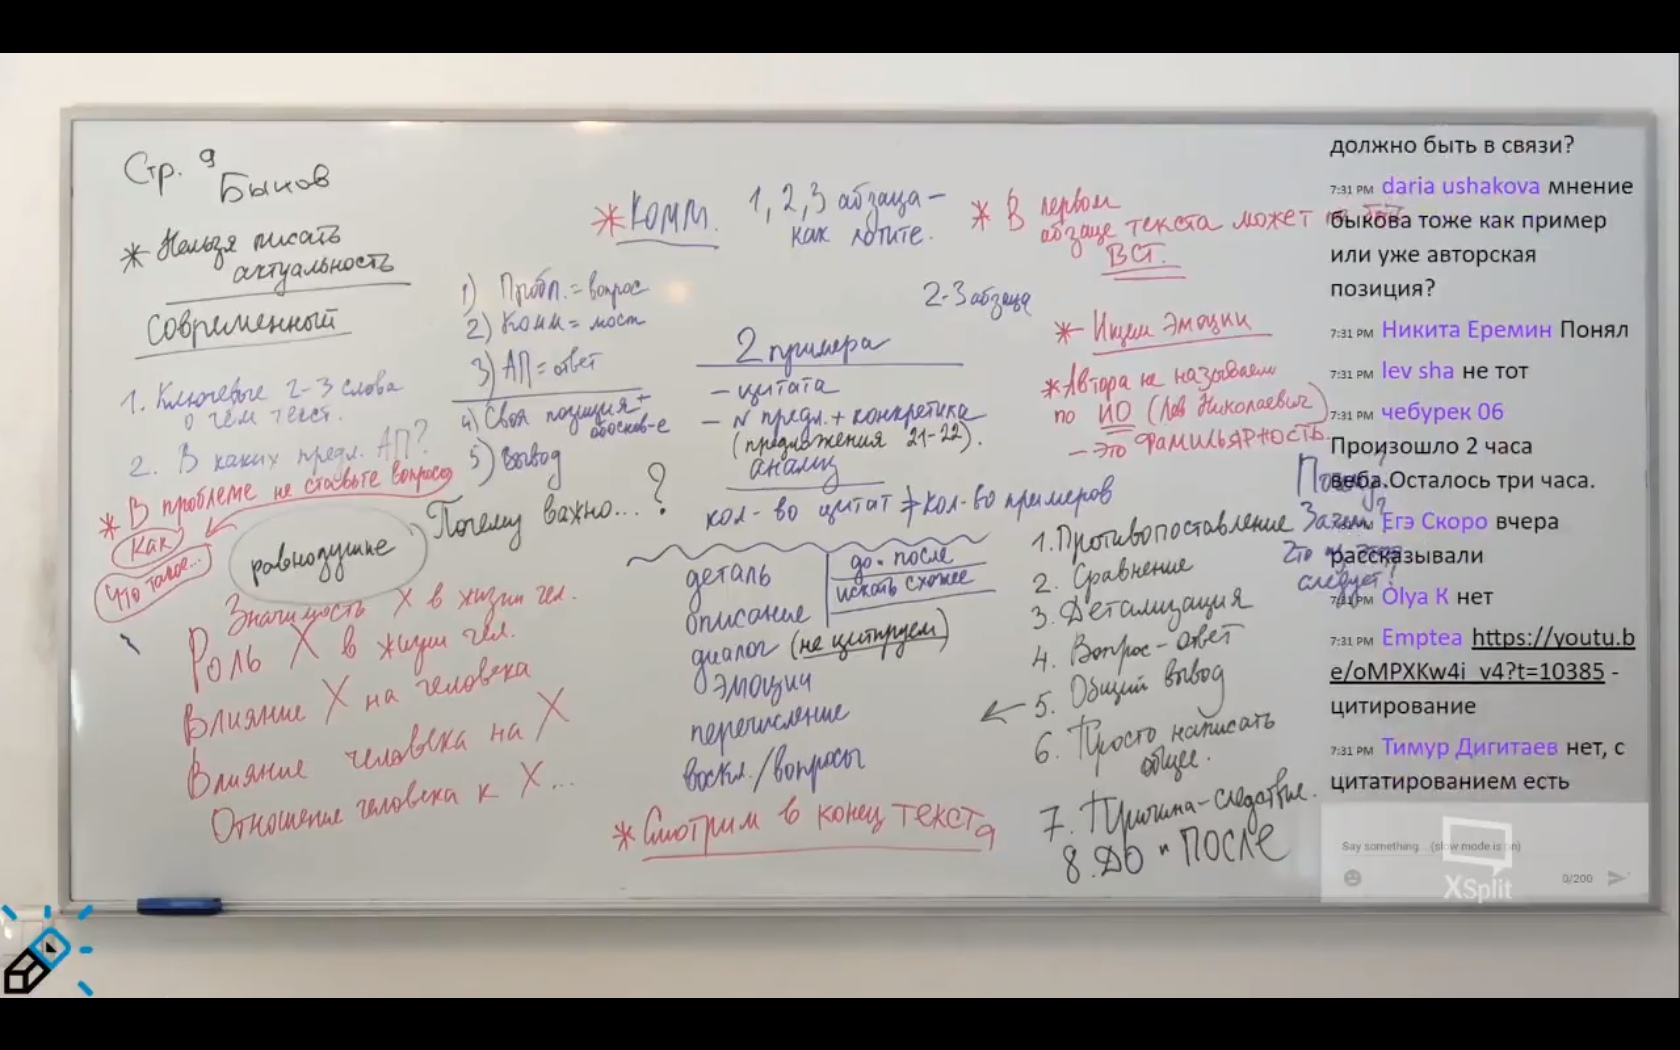 Стр. 9
Быков
* Нельзя писать
актуальность
Современный
1. Ключевые 2-3 слова
о чём текст.
2. В каких предл. АП?
* В проблеме не ставьте вопросы
Как
Что такое...
равнодушие
Почему важно... ?
Значимость X в жизни чел.
Роль X в жизни чел.
Влияние X на человека
Влияние человека на X
Отношение человека к X...
1) Пробл. = вопрос
2) Комм = мост
3) АП = ответ
4) Своя позиция +
обоснов-е
5) Вывод
* Комм.
1, 2, 3 абзаца –
как хотите.
2-3 абзаца
2 примера
– цитата
– N предл. + конкретика
(предложения 21-22).
анализ
кол-во цитат ≠ кол-во примеров
деталь
описание
диалог (не цитируем)
эмоции
перечисление
воскл./вопросы
до - после
искать схожее
* Смотрим в конец текста
* В первом
абзаце текста может
ВСТ.
* Ищем эмоции
* Автора не называем
по ИО (Лев Николаевич)
– это ФАМИЛЬЯРНОСТЬ.
1. Противопоставление
2. Сравнение
3. Детализация
4. Вопрос-ответ
5. Общий вывод
6. Просто написать
общее.
7. Причина-следствие.
8. ДО и ПОСЛЕ
Зачем?
следует?
должно быть в связи?
7:31 PM daria ushakova мнение
быкова тоже как пример
или уже авторская
позиция?
7:31 PM Никита Еремин Понял
7:31 PM lev sha не тот
7:31 PM чебурек 06
Произошло 2 часа
веба.Осталось три часа.
Егэ Скоро вчера
рассказывали
7:31 PM Olya K нет
7:31 PM Emptea https://youtu.b
e/oMPXKw4i_v4?t=10385 -
цитирование
7:31 PM Тимур Дигитаев нет, с
цитатированием есть
Say something... (slow mode is on)
0/200
XSplit